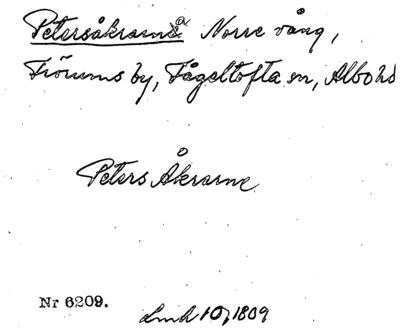 Petersåkrarna Norre vång,
by, Fågeltofta sn, Albo hd
Peters Åkrarne
Nr 6209.
Lmk 10, 1809